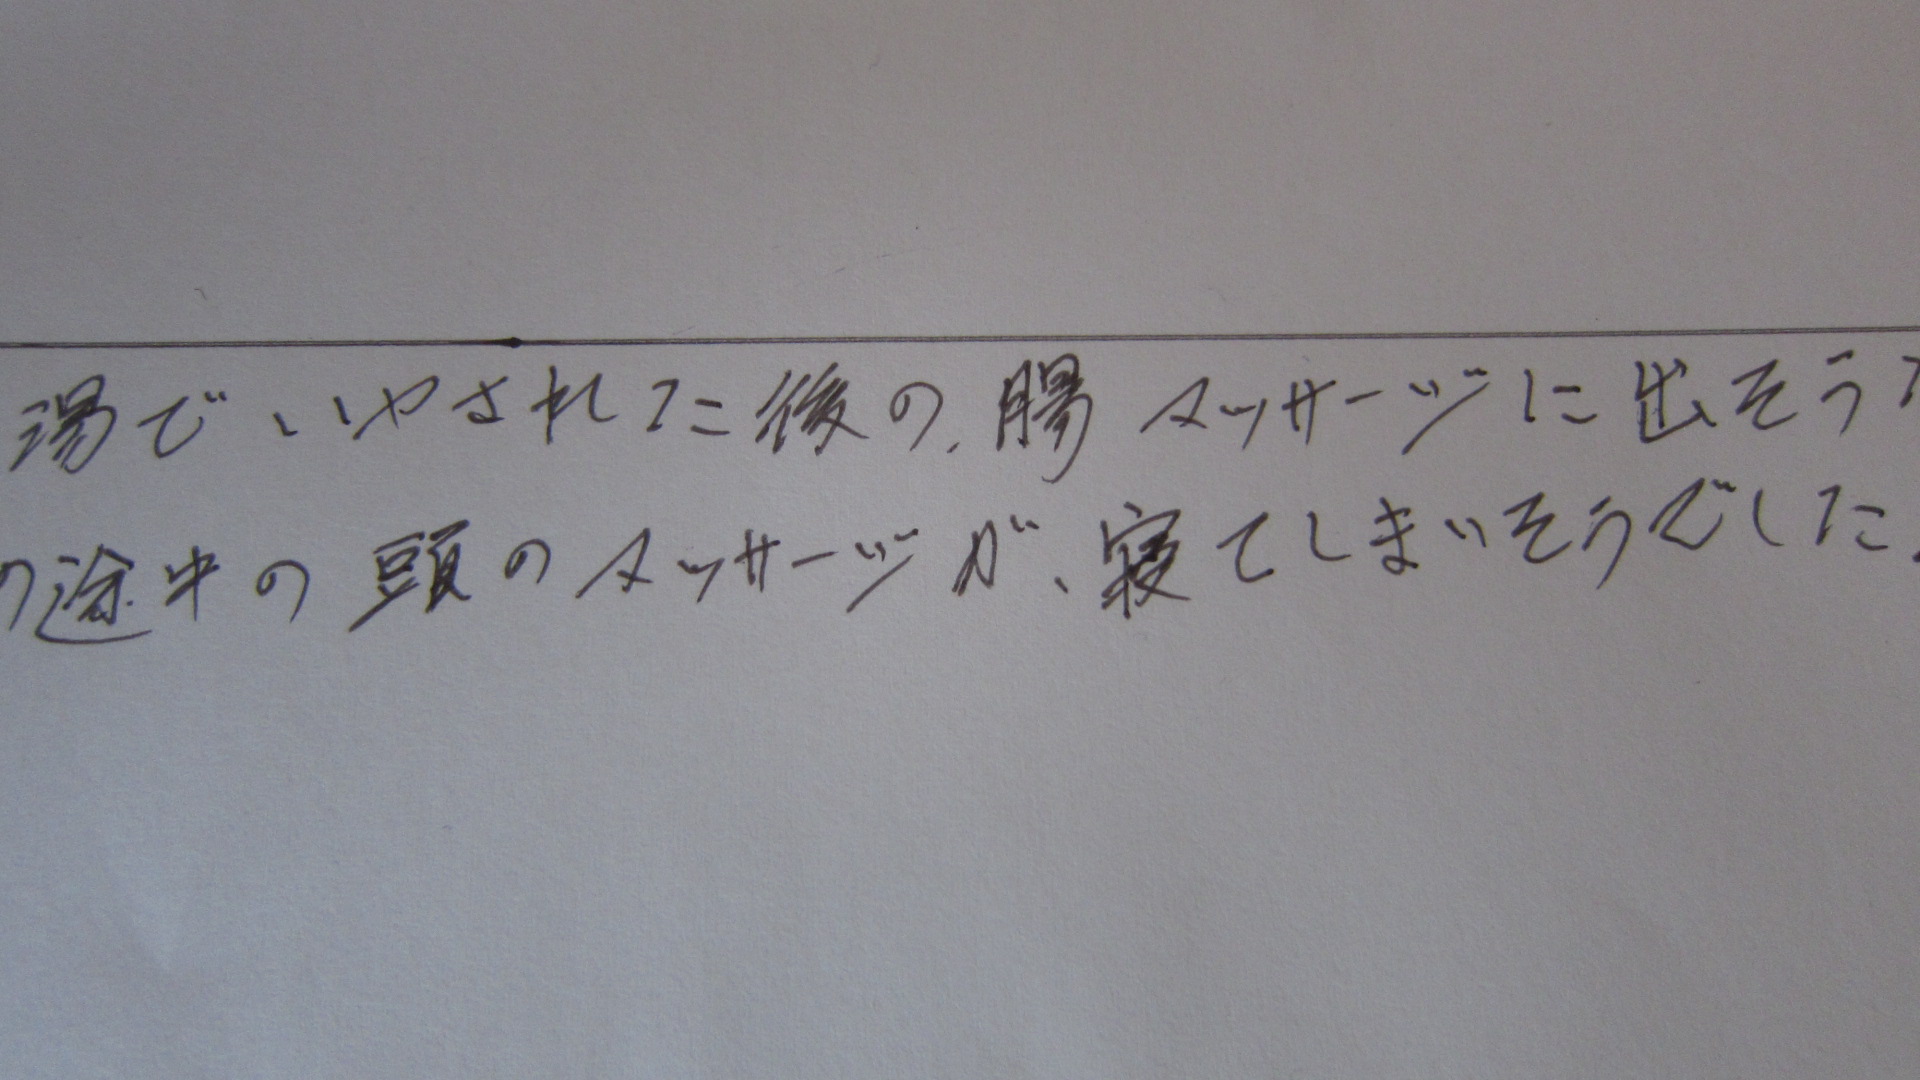 湯でいやされた後の、腸マッサージに出そう
の途中の頭のマッサージが、寝てしまいそうでした。